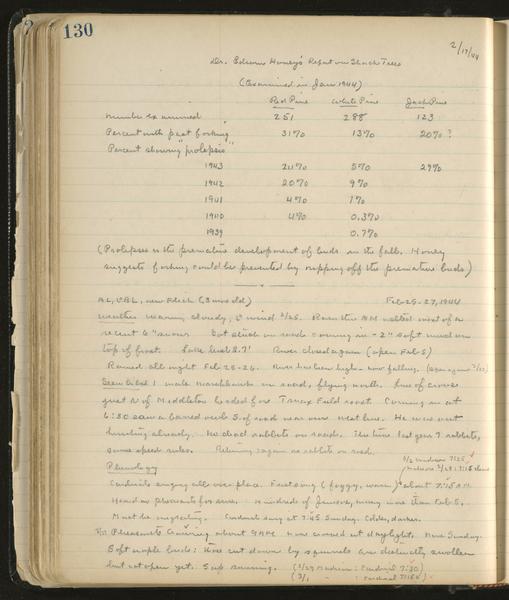 130
2/17/44
Dr. Edwin Honey's Report on Shack Trees
(Examined in Jan 1944)
Red Pine White Pine Jack Pine
Number examined 251 288 123
Percent with past forking 31% 13% 20%?
Percent showing "prolepsis"
1943 24% 5% 29%
1942 20% 9%
1941 4% 1%
1940 4% 0.3%
1939 0.7%
(Prolepsis is the premature development of buds in the fall. Honey
suggests forking could be prevented by nipping off the premature buds)
AL, EBL, new Flick (3 mos old) Feb 25-27, 1944
Weather warm, cloudy, S wind 2/25. Rain the AM melted most of a
recent 6" snow. Got stuck on road coming in - 2" soft mud on
top of frost. Lake level 8.7' River closed again (open Feb 5)
Rained all night Feb 25-26. River has been high - now falling.
1 male marsh hawk on road, flying north. Line of crows
just N of Middleton headed for Truax Field roost. Coming in at
6:30 saw a barred owl S of road near our west line. He was out
hunting already. He had rabbits on road. This time last year 7 rabbits,
same speed rides. Returning again no rabbits on road.
Phenology
Cardinals singing all over place. First song (foggy, warm) about 7:15 AM
Heard no pheasants for sure. Hundreds of juncos, many more than Feb 5.
Must be migrating. Cardinals sang at 7:45 Sunday. Colder, darker.
Pheasants crowing about 9 AM. None crowed at daylight. None Sunday.
Soft maple buds: those cut down by squirrels are distinctly swollen
but not open yet. Sap running. (2/29 Madison: Cardinal 7:30)
(3/1 " : Cardinal 7:15)